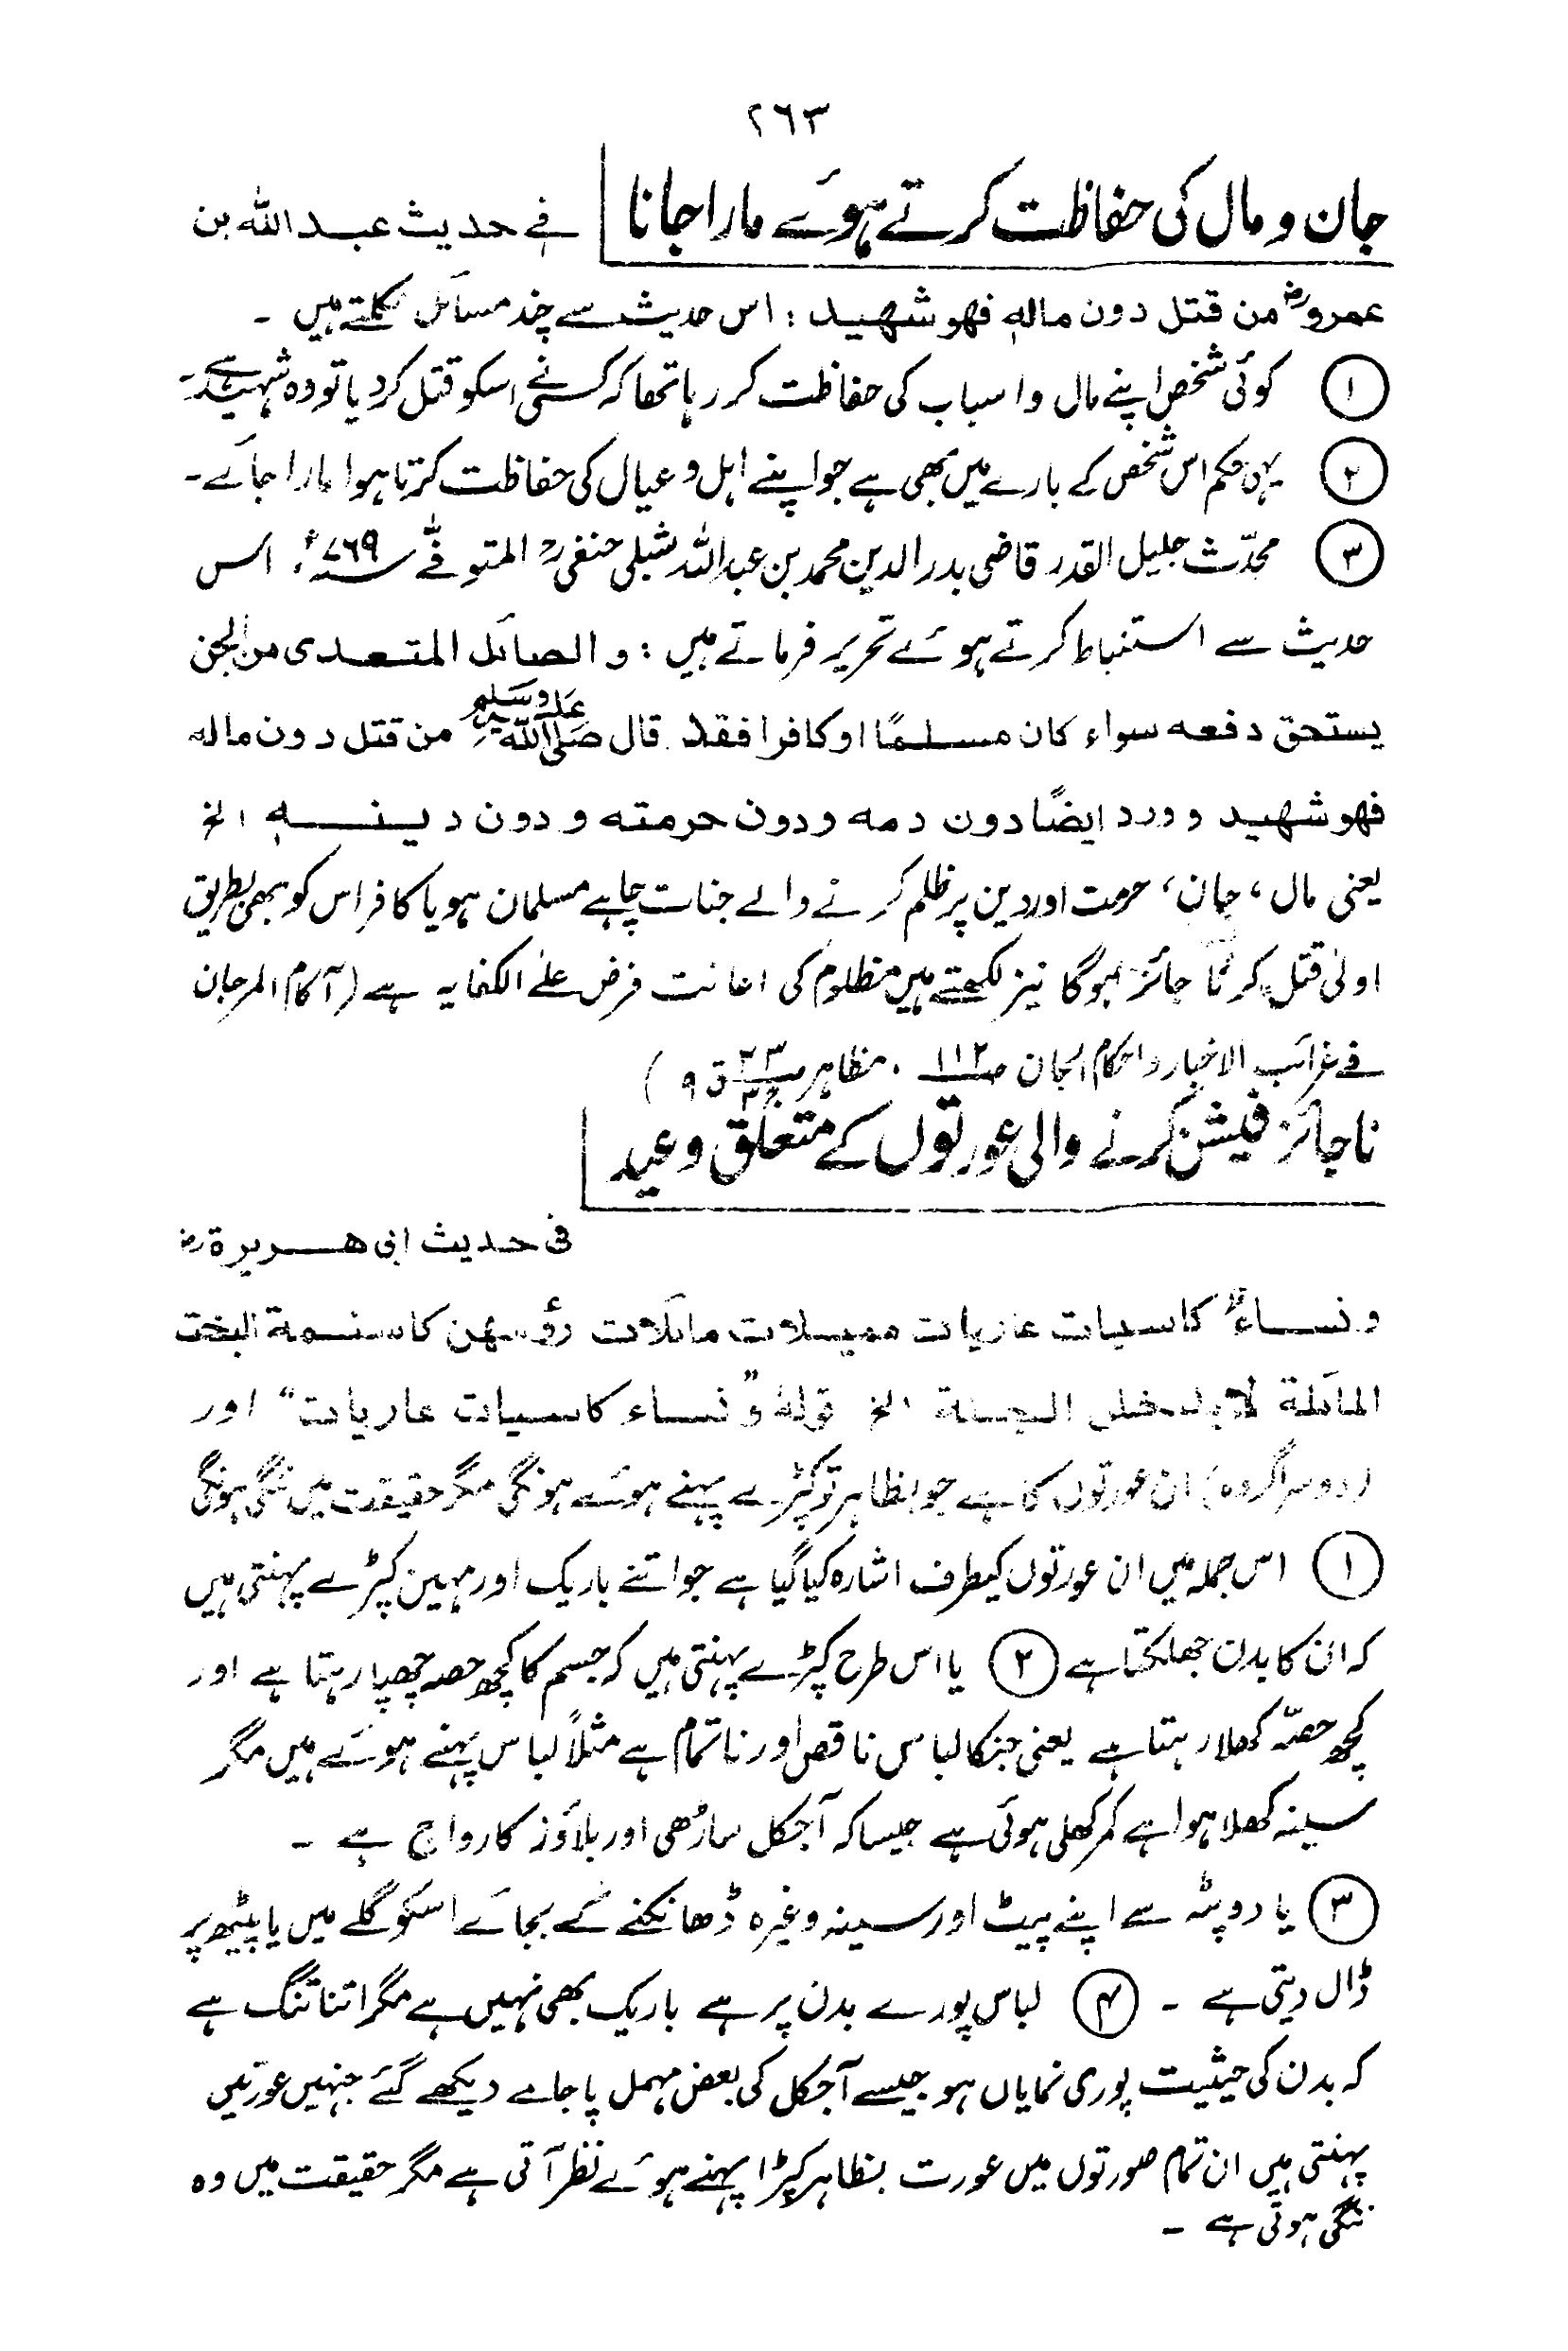 ۲۶۳
جان و مال کی حفاظت کرتے ہوئے مارا جانا فے حدیث عبد اللہ بن
عمروؓ من قتل دون مالہٖ فھو شھید : اس حدیث سے چند مسائل نکلتے ہیں ۔
① کوئی شخص اپنے مال و اسباب کی حفاظت کر رہا تھا کہ کسی نے اسکو قتل کر دیا تو وہ شہید ہے۔
② یہی حکم اس شخص کے بارے میں بھی ہے جو اپنے اہل و عیال کی حفاظت کرتا ہوا مارا جائے۔
③ محدّث جلیل القدر قاضی بدر الدین محمد بن عبد اللہ شبلی حنفیؒ المتوفےٰ ۷۶۹ھ اس
حدیث سے استنباط کرتے ہوئے تحریر فرماتے ہیں : و الصائل المتعدی من الجن
یستحق دفعہ سواء کان مسلمًا او کافرا فقد قال صلی اللہ علیہ وسلم من قتل دون مالہ
فھو شھید و ورد ایضًا دون دمہ ودون حرمتہ و دون دینہٖ الخ
یعنی مال ، جان ، حرمت اور دین پر ظلم کرنے والے جنات چاہے مسلمان ہو یا کافر اس کو بھی بطریق
اولیٰ قتل کرنا جائز ہوگا نیز لکھتے ہیں مظلوم کی اعانت فرض علےٰ الکفایہ ہے (آکام المرجان
فے غرائب الاخبار و احکام الجان صـ۱۱۲ ، مظاہر ق ۹ )
ناجائز فیشن کرنے والی عورتوں کے متعلق وعید
فی حدیث ابی ھریرۃؓ
و نساءٌ کاسیات عاریات ممیلات مائلات رؤسھن کاسنمة البخت
المائلة لا یدخلن الجنة الخ قولہٗ "و نساء کاسیات عاریات" اور
(دوسرا گروہ) ان عورتوں کا ہے جو بظاہر تو کپڑے پہنے ہوئے ہونگی مگر حقیقت میں ننگی ہونگی
① اس جملہ میں ان عورتوں کیطرف اشارہ کیا گیا ہے جو اتنے باریک اور مہین کپڑے پہنتی ہیں
کہ ان کا بدن جھلکتا ہے ② یا اس طرح کپڑے پہنتی ہیں کہ جسم کا کچھ حصہ چھپا رہتا ہے اور
کچھ حصّہ کھلا رہتا ہے یعنی جنکا لباس ناقص اور ناتمام ہے مثلاً لباس پہنے ہوئے ہیں مگر
سینہ کھلا ہوا ہے کمر کھلی ہوئی ہے جیسا کہ آجکل ساڑھی اور بلاؤز کا رواج ہے ۔
③ یا دوپٹہ سے اپنے پیٹ اور سینہ وغیرہ ڈھانکنے کے بجائے اسکو گلے میں یا پیٹھ پر
ڈال دیتی ہے ۔ ④ لباس پورے بدن پر ہے باریک بھی نہیں ہے مگر اتنا تنگ ہے
کہ بدن کی حیثیت پوری نمایاں ہو جیسے آجکل کی بعض مہمل پاجامے دیکھے گئے جنہیں عورتیں
پہنتی ہیں ان تمام صورتوں میں عورت بظاہر کپڑا پہنے ہوئے نظر آتی ہے مگر حقیقت میں وہ
ننگی ہوتی ہے ۔